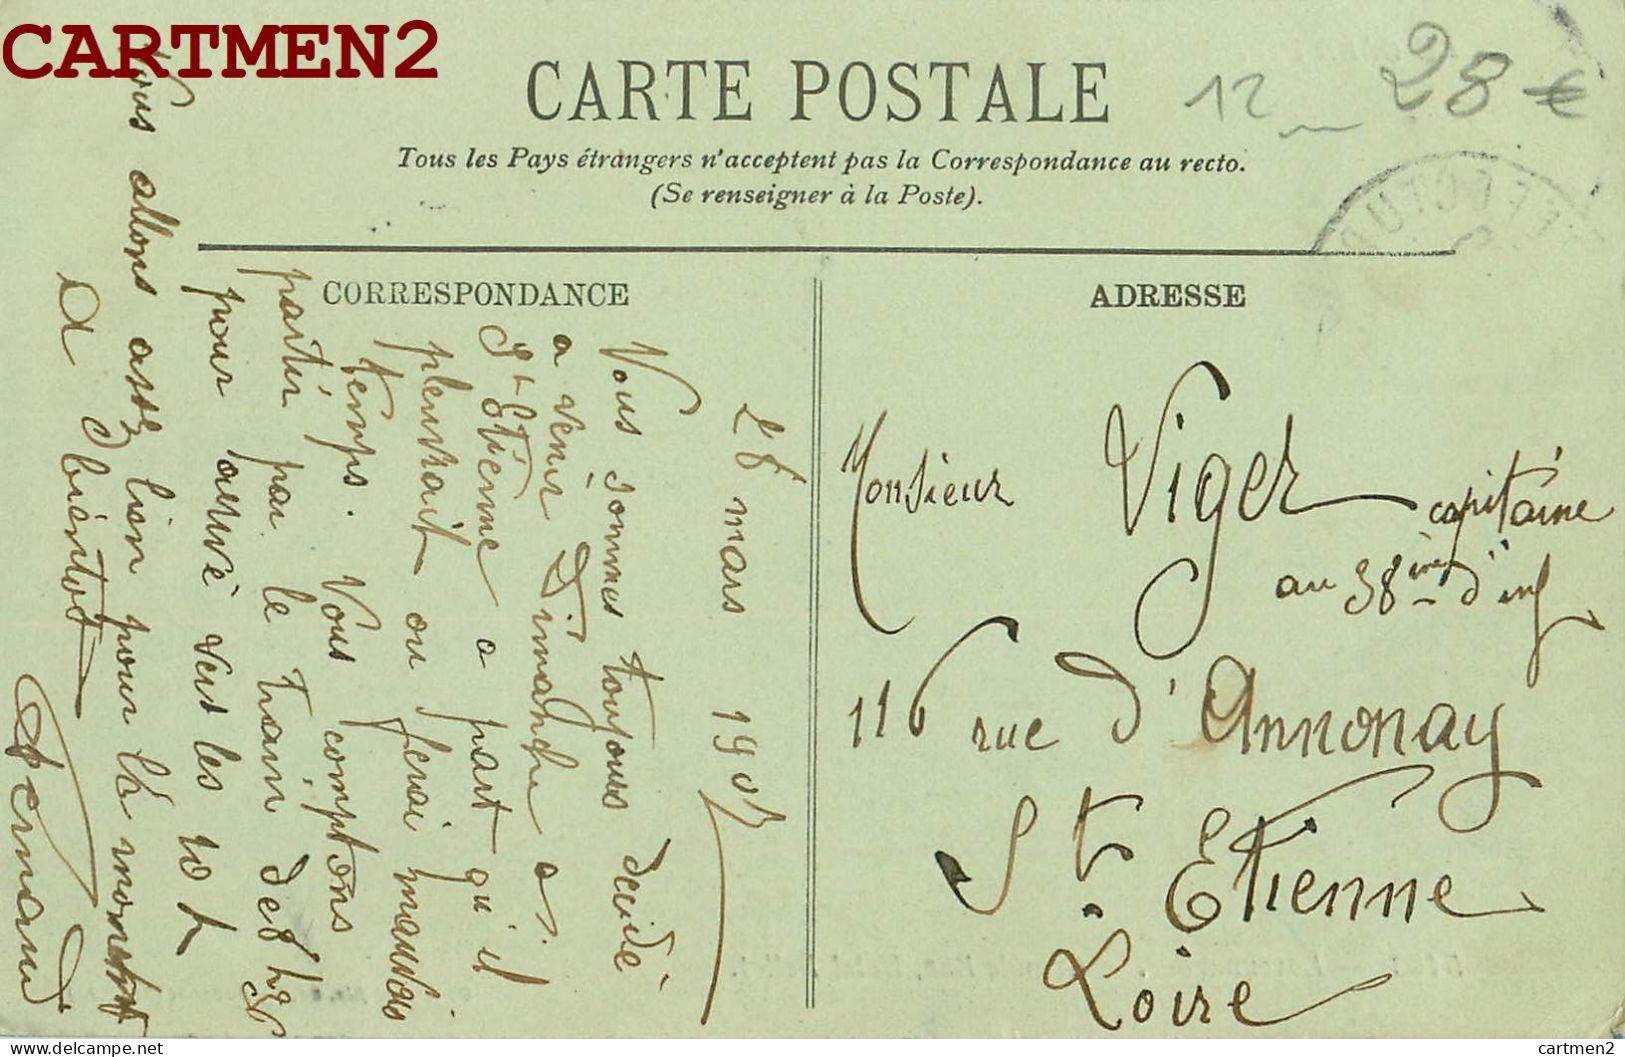 CARTMEN2
12
28 €
CARTE POSTALE
Tous les Pays étrangers n'acceptent pas la Correspondance au recto.
(Se renseigner à la Poste).
CORRESPONDANCE
28 mars 1905
Vous sommes toujours décidé
a venir Dimanche a
St Etienne a part qu'il
pleuvrait ou ferai mauvais
temps. Vous comptons
partir par le train de 8 h
pour arrivé vers les 10 h
Nous allons assez bien pour le moment
A bientot
Fernand
ADRESSE
Monsieur Viger capitaine
au 38ème d'inf
116 rue d'Annonay
St. Etienne
Loire
https://www.delcampe.net
cartmen2